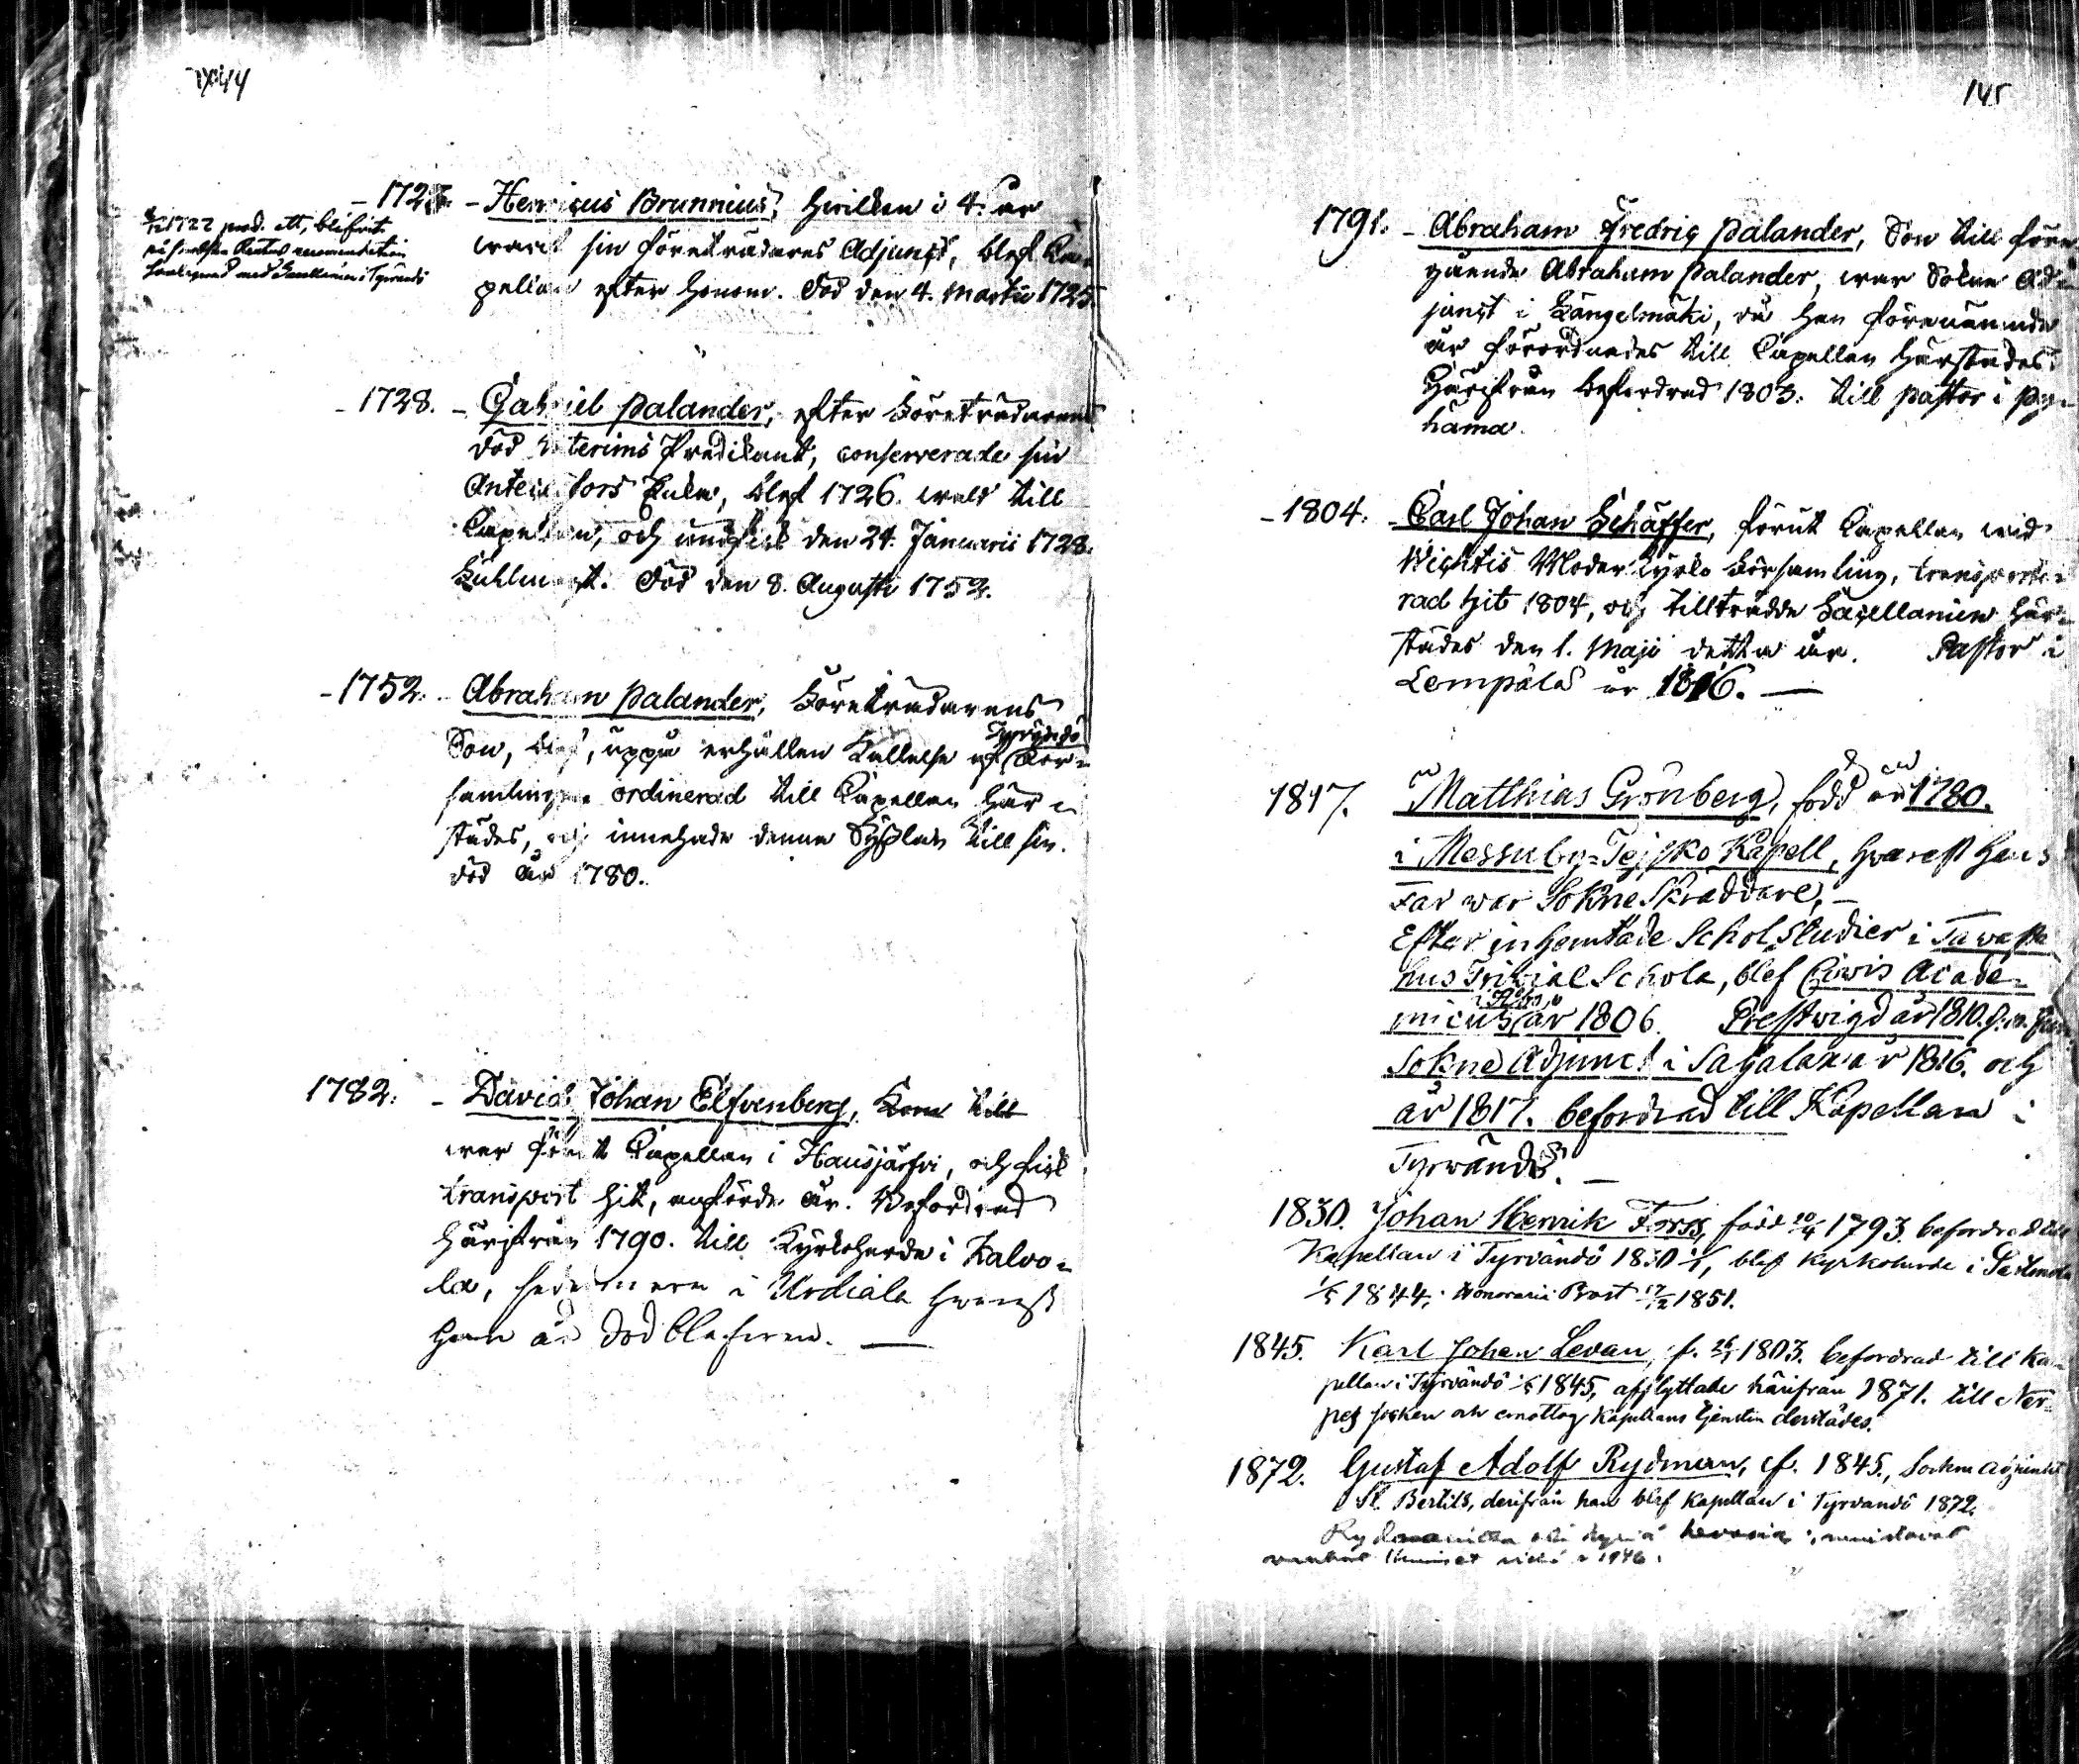 144
- 172 - Henricus Brunnius, hwilken i 4. år
warit sin företrädares Adjunct, blef Ca-
pellan efter honom. Död den 4. Martii 1725.
1722 prod. att, blifvit
- 1728. - Gabriel Palander, efter Företrädarens
död Interims Predikant, conserverade sin
Antecessors Enka, blef 1726. wald till
Capellan, och undfick den 24. Januarii 1728.
Fullmagt. Död den 8. Augusti 1752.
- 1752. - Abraham Palander, Företrädarens
Son, blef, uppå erhållen Kallelse af För-
Tyrvändö
samlingen ordinerad till Capellan här-
städes, och innehade denna Syslan till sin
död år 1780.
1782. - David Johan Elfvenberg, Kom till
war förut Capellan i Hausjärfvi, och fick
transport hit, anförde år. Befordrad
härifrån 1790. till Kyrkoherde i Kalvo-
la, sedermera i Urdiala hwarest
han är död blefwen. —
145
1791. - Abraham Fredric Palander, Son till före-
gående Abraham Palander, war Sokne Ad-
junct i Längelmäki, då han förenämnde
år förordnades till Capellan härstädes.
Härifrån befordrad 1803. till Pastor i Py-
hämaa.
- 1804. Carl Johan Schäffer, förut Capellan wid
Wichtis Moder Kyrko Församling, transporte-
rad hit 1804, och tillträdde Sacellanien här-
städes den 1. Maji detta år. Pastor i
Lempälä år 1816. —
1817. Matthias Grönberg, född år 1780.
i Messuby=Tejsko Kapell, hvarest hans
Far war Sokne Skräddare, —
Efter inhemtade Schol Studier i Tawaste
hus Trivial Schola, blef Civis Acade-
i Åbo
micus år 1806. Prestwigd år 1810.
Sokne Adjunct i Sahalax år 1816. och
år 1817. befordrad till Kapellan i
Tyrwändö. —
1830. Johan Henrik Forss, född 1793. befordrad till
Kapellan i Tyrvändö 1830 1/5, blef Kyrkoherde i
1/5 1844, Honorarie Prost 17/12 1851.
1845. Karl Johan Levan, f. 1803. befordrad till Ka-
pellan i Tyrvändö 1/5 1845, afflyttade härifrån 1871. till Ner-
pes socken och emottog Kapellans tjensten derstädes.
1872. Gustaf Adolf Rydman, f. 1845., Sockne adjunct
St. Bertils, derifrån han blef Kapellan i Tyrvändö 1872.
vanhat ihmiset vielä v 1946.